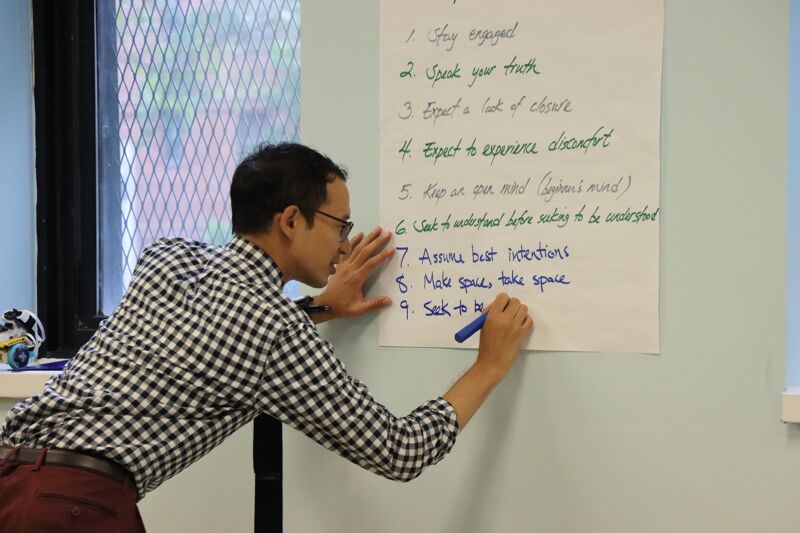 1. Stay engaged
2. Speak your truth
3. Expect a lack of closure
4. Expect to experience discomfort
5. Keep an open mind (beginner's mind)
6. Seek to understand before seeking to be understood
7. Assume best intentions
8. Make space, take space
9. Seek to be